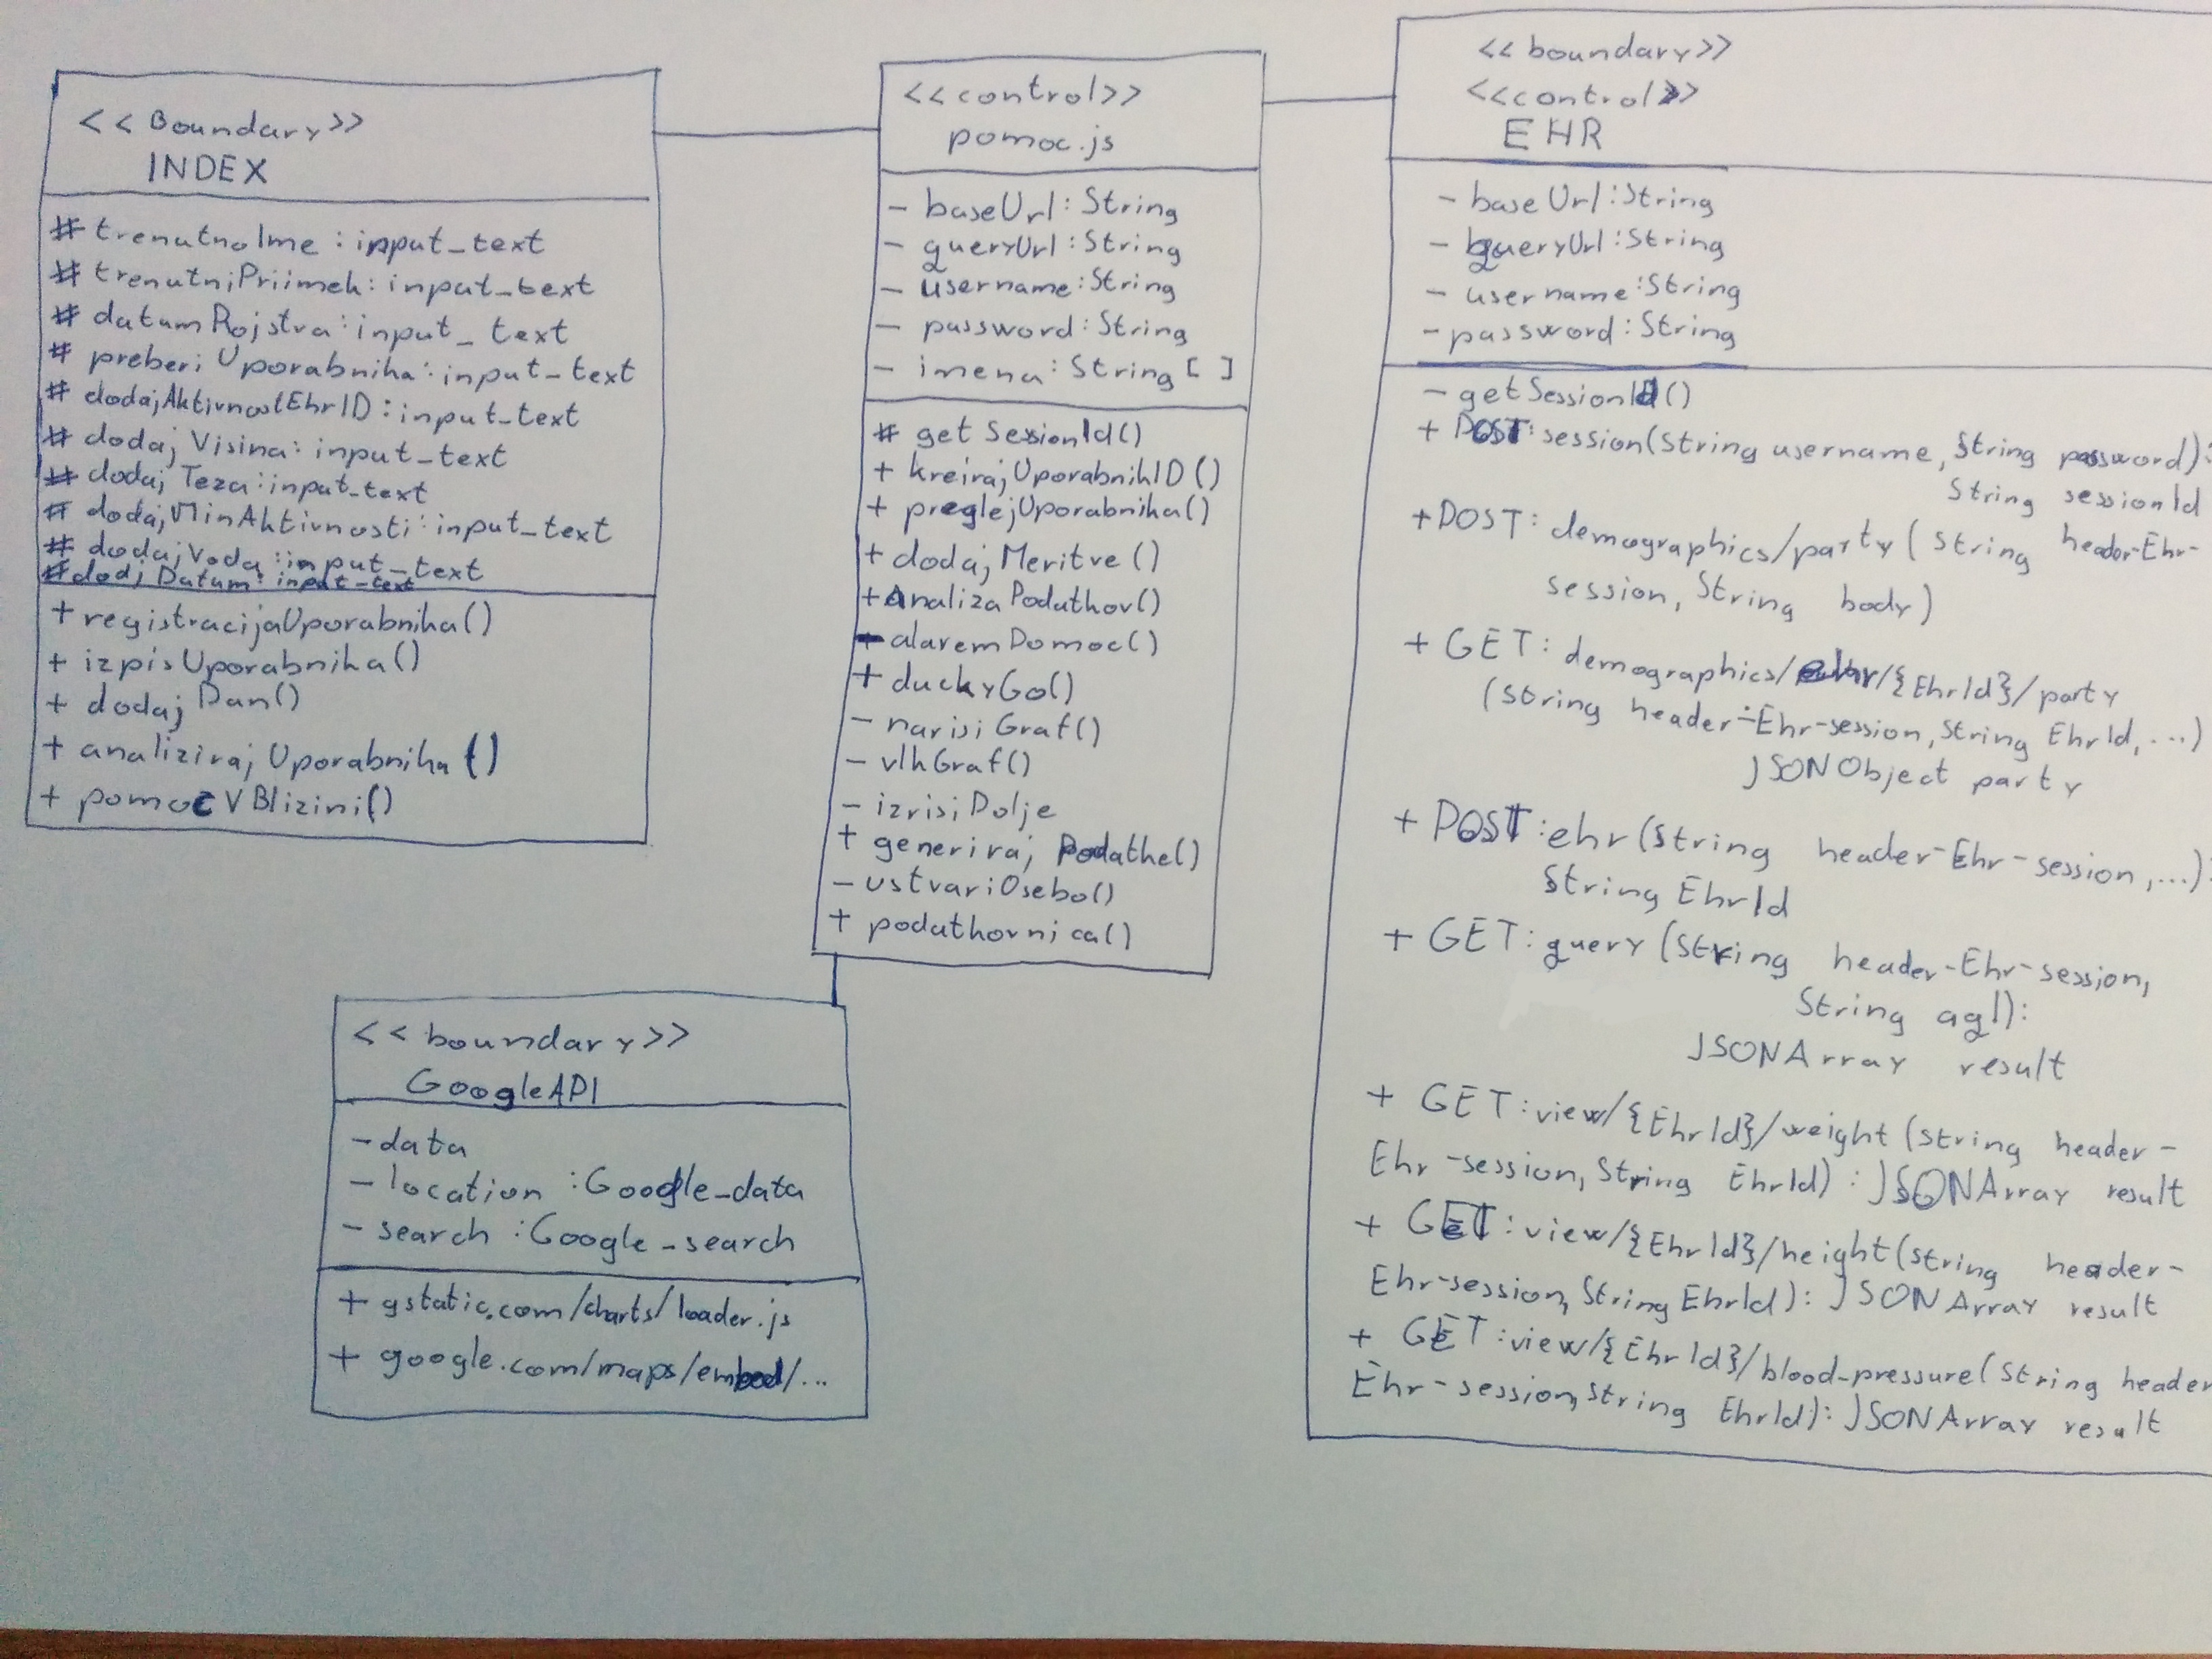 <<Boundary>>
INDEX
# trenutnoIme : input_text
# trenutniPriimek: input_text
# datumRojstva: input_text
# preberiUporabnika: input_text
# dodajAktivnostEhrID: input_text
# dodajVisina: input_text
# dodajTeza: input_text
# dodajMinAktivnosti: input_text
# dodajVoda: input_text
# dodjDatum: input_text
+ registracijaUporabnika()
+ izpisUporabnika()
+ dodajDan()
+ analizirajUporabnika()
+ pomočVBlizini()
<<control>>
pomoc.js
- baseUrl: String
- queryUrl: String
- username: String
- password: String
- imena: String[ ]
# getSessionId()
+ kreirajUporabnikID()
+ preglejUporabnika()
+ dodajMeritve()
+ AnalizaPodatkov()
+ alaremPomoc()
+ duckyGo()
- narisiGraf()
- vlkGraf()
- izrisiPolje
+ generirajPodatke()
- ustvariOsebo()
+ podatkovnica()
<<boundary>>
GoogleAPI
- data
- location : Google_data
- search : Google_search
+ gstatic.com/charts/loader.js
+ google.com/maps/embed/...
<<boundary>>
<<control>>
EHR
- baseUrl: String
- queryUrl: String
- username: String
- password: String
- getSessionId()
+ POST: session(String username, String password):
String sessionId
+ POST: demographics/party (String header-Ehr-
session, String body)
+ GET: demographics/ehr/{EhrId}/party
(String header-Ehr-session, String EhrId, ...)
JSONObject party
+ POST: ehr(String header-Ehr-session, ...):
String EhrId
+ GET: query (String header-Ehr-session,
String aql):
JSONArray result
+ GET: view/{EhrId}/weight (String header-
Ehr-session, String EhrId) : JSONArray result
+ GET: view/{EhrId}/height(String header-
Ehr-session, String EhrId): JSONArray result
+ GET: view/{EhrId}/blood-pressure(String header
Ehr-session, String EhrId): JSONArray result